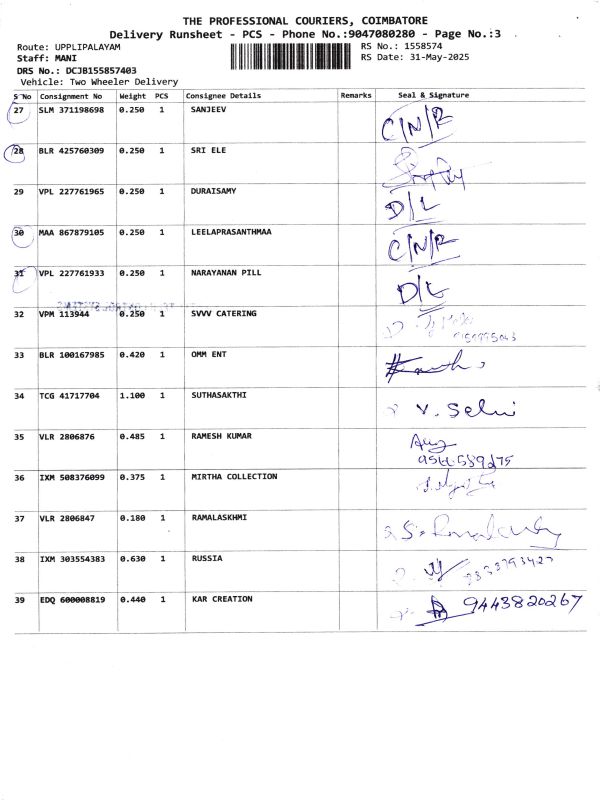 THE PROFESSIONAL COURIERS, COIMBATORE
Delivery Runsheet - PCS - Phone No.:9047080280 - Page No.:3
Route: UPPLIPALAYAM RS No.: 1558574
Staff: MANI RS Date: 31-May-2025
DRS No.: DCJB155857403
Vehicle: Two Wheeler Delivery
S No Consignment No Weight PCS Consignee Details Remarks Seal & Signature
27 SLM 371198698 0.250 1 SANJEEV C/N/R
28 BLR 425760309 0.250 1 SRI ELE
29 VPL 227761965 0.250 1 DURAISAMY D/L
30 MAA 867879105 0.250 1 LEELAPRASANTHMAA C/N/R
31 VPL 227761933 0.250 1 NARAYANAN PILL D/L
32 VPM 113944 0.250 1 SVVV CATERING
33 BLR 100167985 0.420 1 OMM ENT
34 TCG 41717704 1.100 1 SUTHASAKTHI V. Selvi
35 VLR 2806876 0.485 1 RAMESH KUMAR
36 IXM 508376099 0.375 1 MIRTHA COLLECTION
37 VLR 2806847 0.180 1 RAMALASKHMI
38 IXM 303554383 0.630 1 RUSSIA
39 EDQ 600008819 0.440 1 KAR CREATION 9443820267